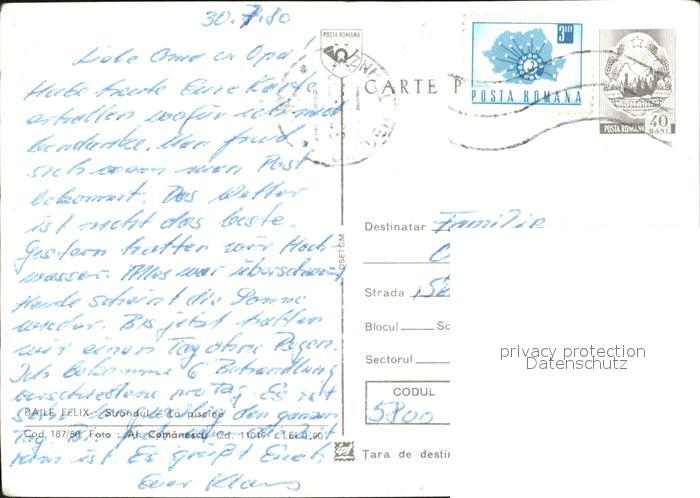 30.7.80
Liebe Oma u Opa!
Habe heute Eure Karte
erhalten wofür ich mich
bedanke. Man freut
sich wenn man Post
bekommt. Das Wetter
ist nicht das beste.
Gestern hatten wir Hoch-
wasser. Alles war überschwemmt
Heute scheint die Sonne
wieder. Bis jetzt hatten
wir einen Tag ohne Regen.
Ich bekomme 6 Behandlung
verschiedene pro Tag. Es ist
den ganzen
Tag
ist. Es grüßt Euch
Euer Klaus
BĂILE FELIX - Ștrandul - La piscine
Cod. 187/80 Foto: Al. Comănescu Cd. LEI
POSTA ROMANA
CARTE P
3 LEI
POSTA ROMANA
POSTA ROMANA
40
BANI
Destinatar Familie
Strada
Blocul Sc
Sectorul
CODUL
5800
Țara de destin
privacy protection
Datenschutz